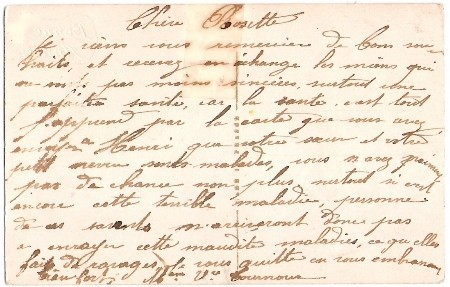 Chère Rosette
Je viens vous remercier de bons sou
haits, et recevez en échange les miens qui
ne sont pas moins sincères, surtout une
parfaite santé, car la santé c'est tout
J'apprend par la carte que vous avez
envoyé a Henri que votre sœur et votre
petit neveu sont malades, vous n'avez vraiment
pas de chance non plus, surtout si c'est
encore cette terrible maladie, personne
de ces savants, n'arriveront donc pas
a enrayer cette maudite maladies, ce que elles
fait de ravages, Je vous quitte en vous embrassant
bien fort Mme Vve Tournour